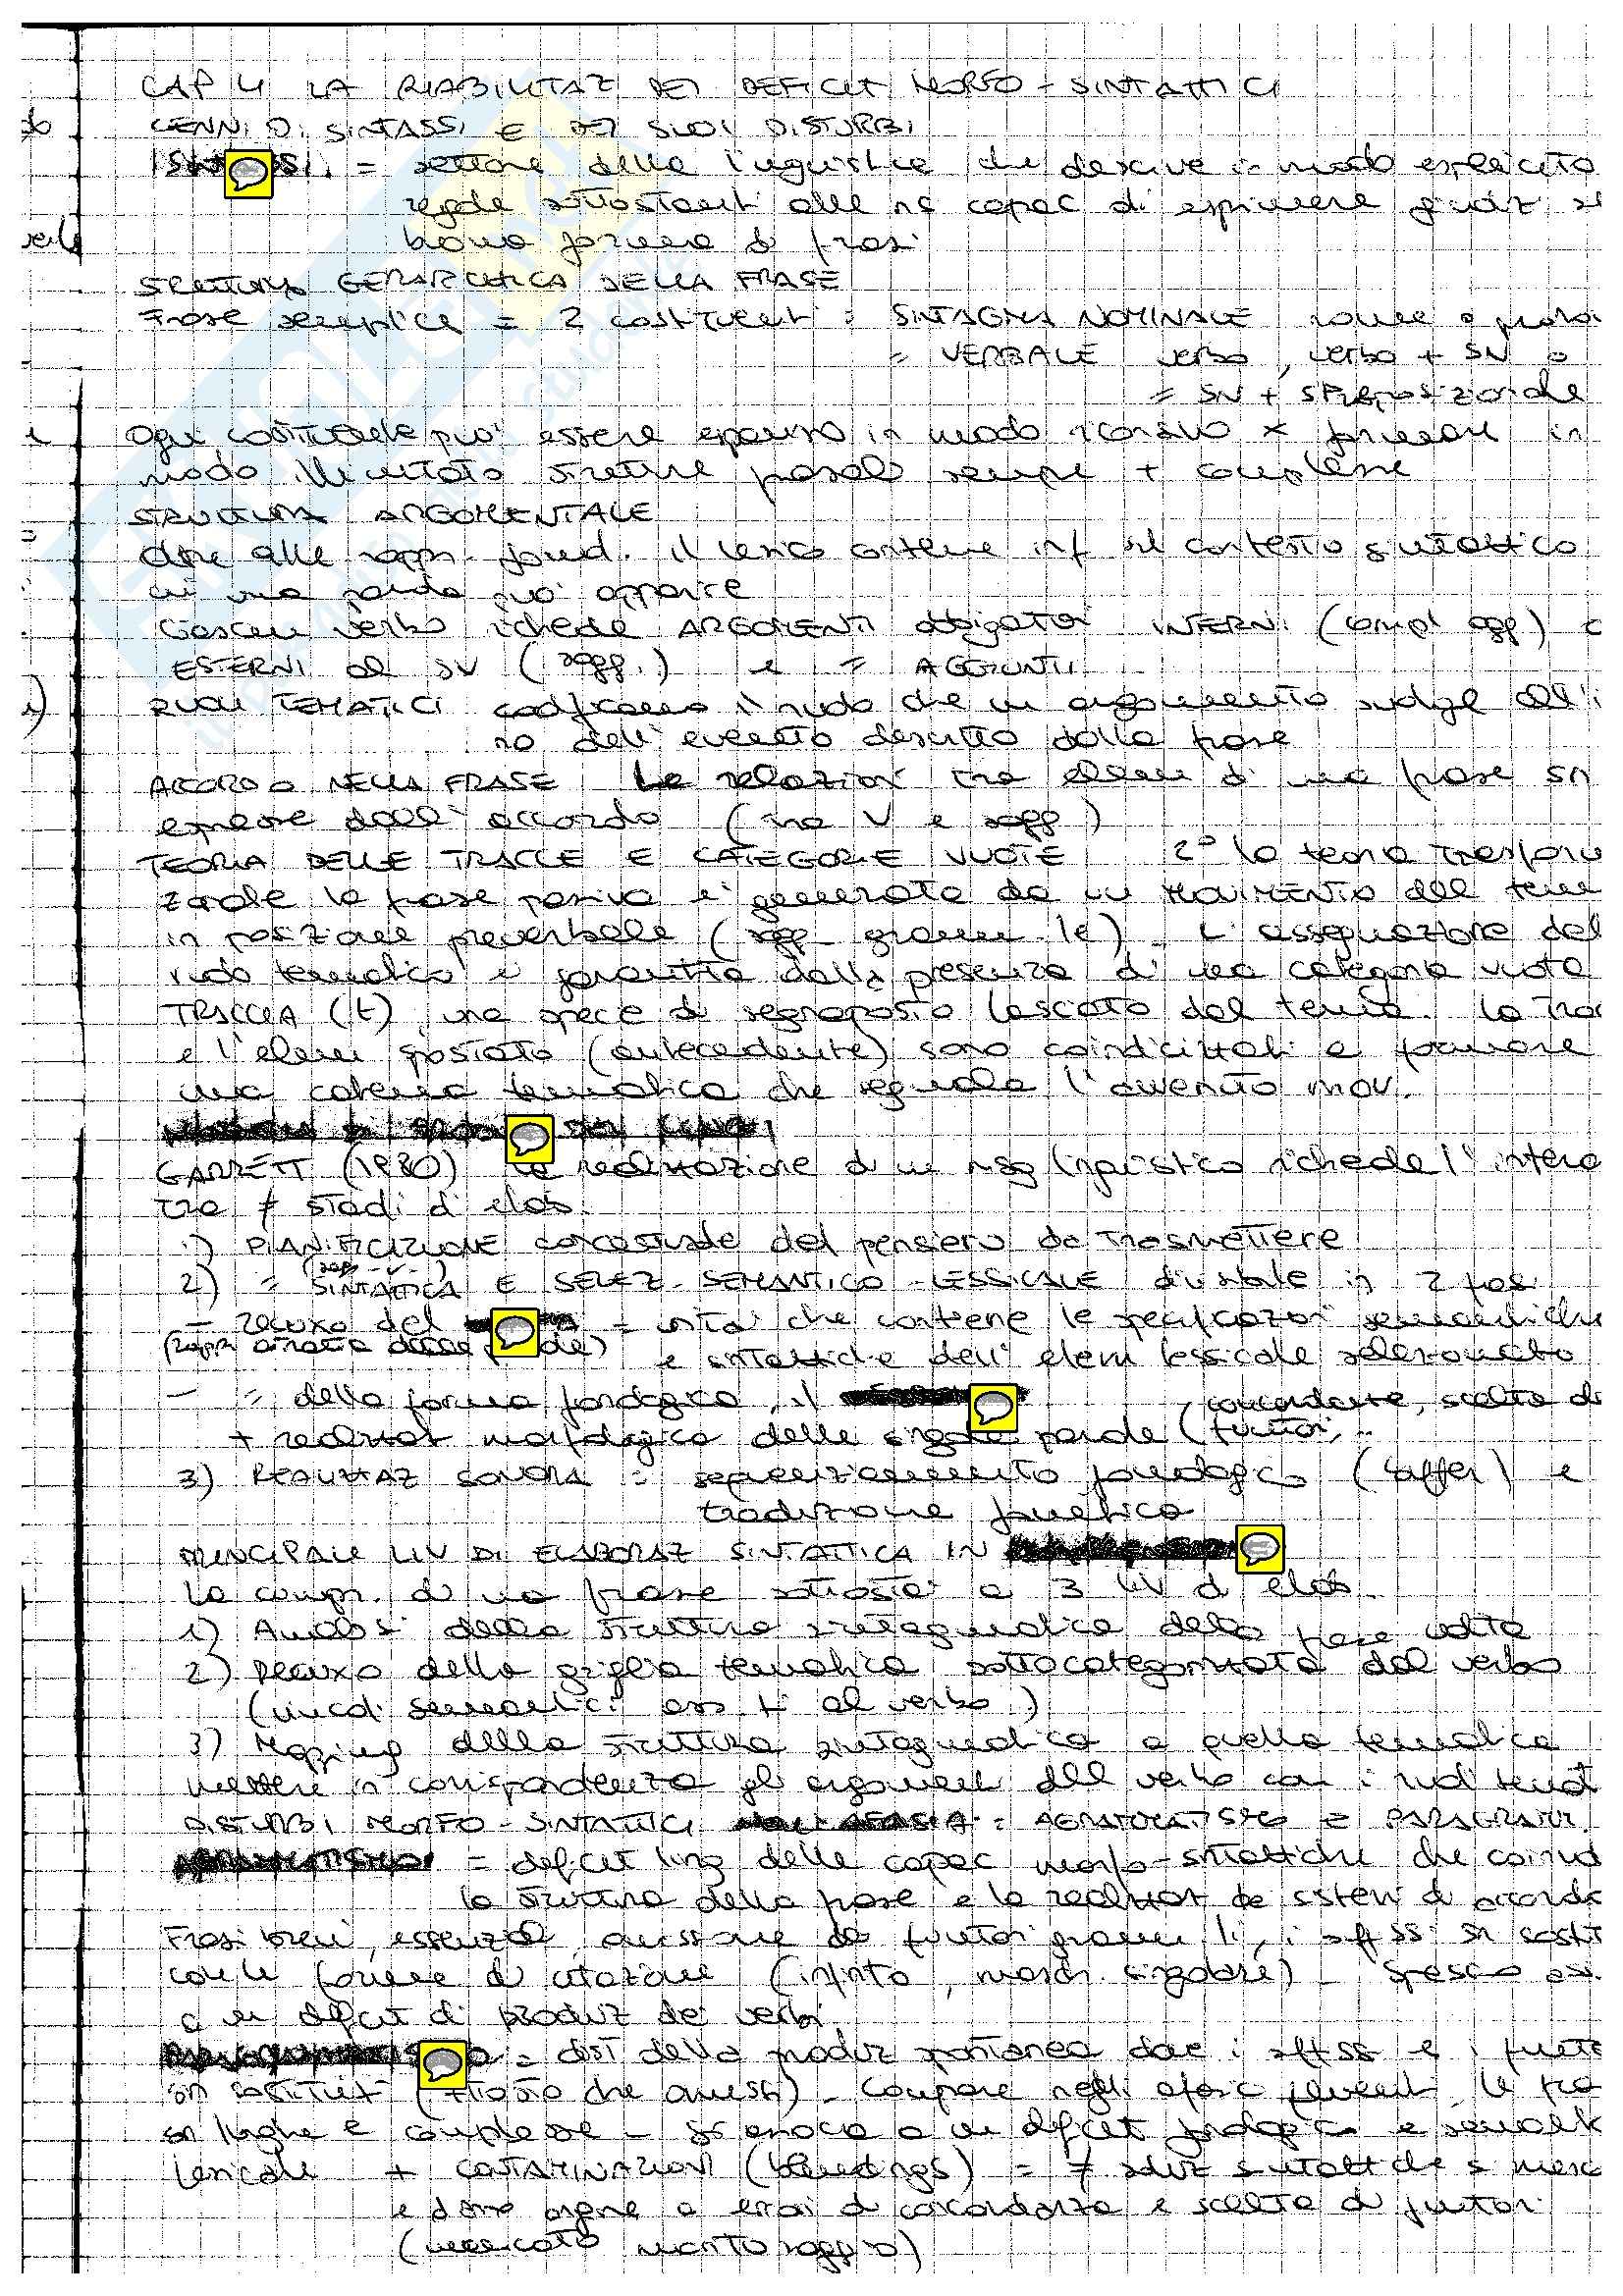 CAP 4 LA RIABILITAZ DEI DEFICIT MORFO-SINTATTICI
CENNI DI SINTASSI E DEI SUOI DISTURBI
= settore della linguistica che descrive in modo esplicito
regole sottostanti alle ns capac di esprimere giudiz
buona forma di frasi
STRUTTURA GERARCHICA DELLA FRASE
Frase semplice = 2 costituenti = SINTAGMA NOMINALE nome o
= VERBALE verbo, verbo + SN o
= SN + SPreposizionale
Ogni costituente può essere espanso in modo ricorsivo x formare in
modo illimitato strutture frasali sempre + complesse
STRUTTURA ARGOMENTALE
oltre alle rappr. fonol. il lessico contiene inf sul contesto sintattico
cui una parola può apparire
Ciascun verbo richiede ARGOMENTI obbligatori INTERNI (compl ogg)
ESTERNI al SV (sogg.) e = AGGIUNTI
RUOLI TEMATICI codificano il ruolo che un argomento svolge all'i
no dell'evento descritto dalla frase
ACCORDO NELLA FRASE Le relazioni tra elem di una frase sn
espresse dall'accordo (tra V e sogg)
TEORIA DELLE TRACCE E CATEGORIE VUOTE 2° la teoria trasforma
zionale la frase passiva è generata da un MOVIMENTO del tema
in posizione preverbale (sogg gramm.le). L'assegnazione del
ruolo tematico è garantita dalla presenza di una categoria vuota
TRACCIA (t), una specie di segnaposto lasciato dal tema. La
e l'elem spostato (antecedente) sono coindicizzati e formano
una catena tematica che segnala l'avvenuto mov.
GARRETT (1980) La realizzazione di un msg linguistico richiede l'intera
tra ≠ stadi di elab.
1) PIANIFICAZIONE concettuale del pensiero da trasmettere
2) = SINTATTICA E SELEZ. SEMANTICO-LESSICALE divisibile in 2 fasi
- recupero del = entità che contiene le specificazioni semantiche
e sintattiche dell'elem lessicale selezionato
- = della forma fonologica, il
concordanze, scelta di
+ realizzaz morfologica delle singole parole (funtori,
3) REALIZZAZ SONORA = sequenziamento fonologico (buffer) e
traduzione fonetica
PRINCIPALI LIV DI ELABORAZ SINTATTICA IN
La compr. di una frase sottostà a 3 liv di elab.
1) Analisi della struttura sintagmatica della frase udita
2) Recupero della griglia tematica sottocategorizzata dal verbo
(vincoli semantici ass.ti al verbo)
3) Mapping della struttura sintagmatica a quella tematica
mettere in corrispondenza gli argomenti del verbo con i ruoli temat
DISTURBI MORFO-SINTATTICI NELL'AFASIA = AGRAMMATISMO E PARAGRAMM.
= deficit ling delle capac morfo-sintattiche che
la struttura della frase e la realizzaz dei sistemi di accordo
Frasi brevi, essenziali, omissione dei funtori gramm.li, i affissi sn
con le forme di citazione (infinito, masch. singolare) - spesso
a un deficit di produz dei verbi
= dist della produz spontanea dove i affissi e i
sn sostituiti (piuttosto che omessi). Compare negli afasici fluenti, le
sn lunghe e complesse - si associa a un deficit fonologico e
lessicale + CONTAMINAZIONI (blendings) = ≠ soluz sintattiche s
e danno origine a errori di concordanza e scelta di funtori